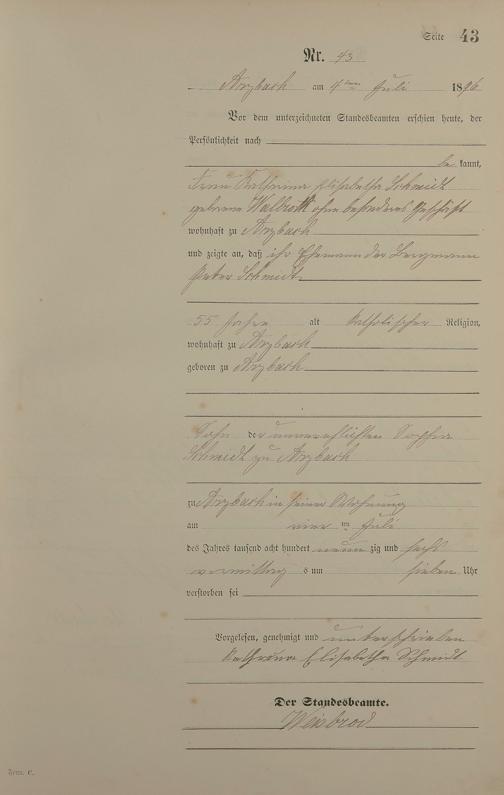 Seite 43
Nr. 43
Arzbach am 4ten Juli 1896
Vor dem unterzeichneten Standesbeamten erschien heute, der
Persönlichkeit nach
be kannt,
Frau Katharina Elisabetha Schmidt
geborene Walbroth ohne besonderes Geschäft
wohnhaft zu Arzbach
und zeigte an, daß ihr Ehemann der Bergmann
Peter Schmidt
55 Jahre alt katholischer Religion,
wohnhaft zu Arzbach
geboren zu Arzbach
Sohn der unverehelichten Sophia
Schmidt zu Arzbach
zu Arzbach in seiner Wohnung
am vier ten Juli
des Jahres tausend acht hundert neun zig und sechs
vormittag s um sieben Uhr
verstorben sei
Vorgelesen, genehmigt und unterschrieben
Kathrina Elisabetha Schmidt
Der Standesbeamte.
Weisbrod
Form. C.